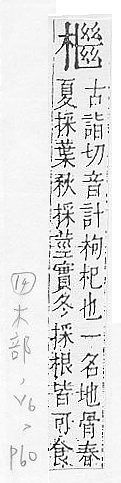 檵
古詣切音計枸杞也一名地骨春
夏採葉秋採莖實冬採根皆可食
⑭木部,V6,
P60